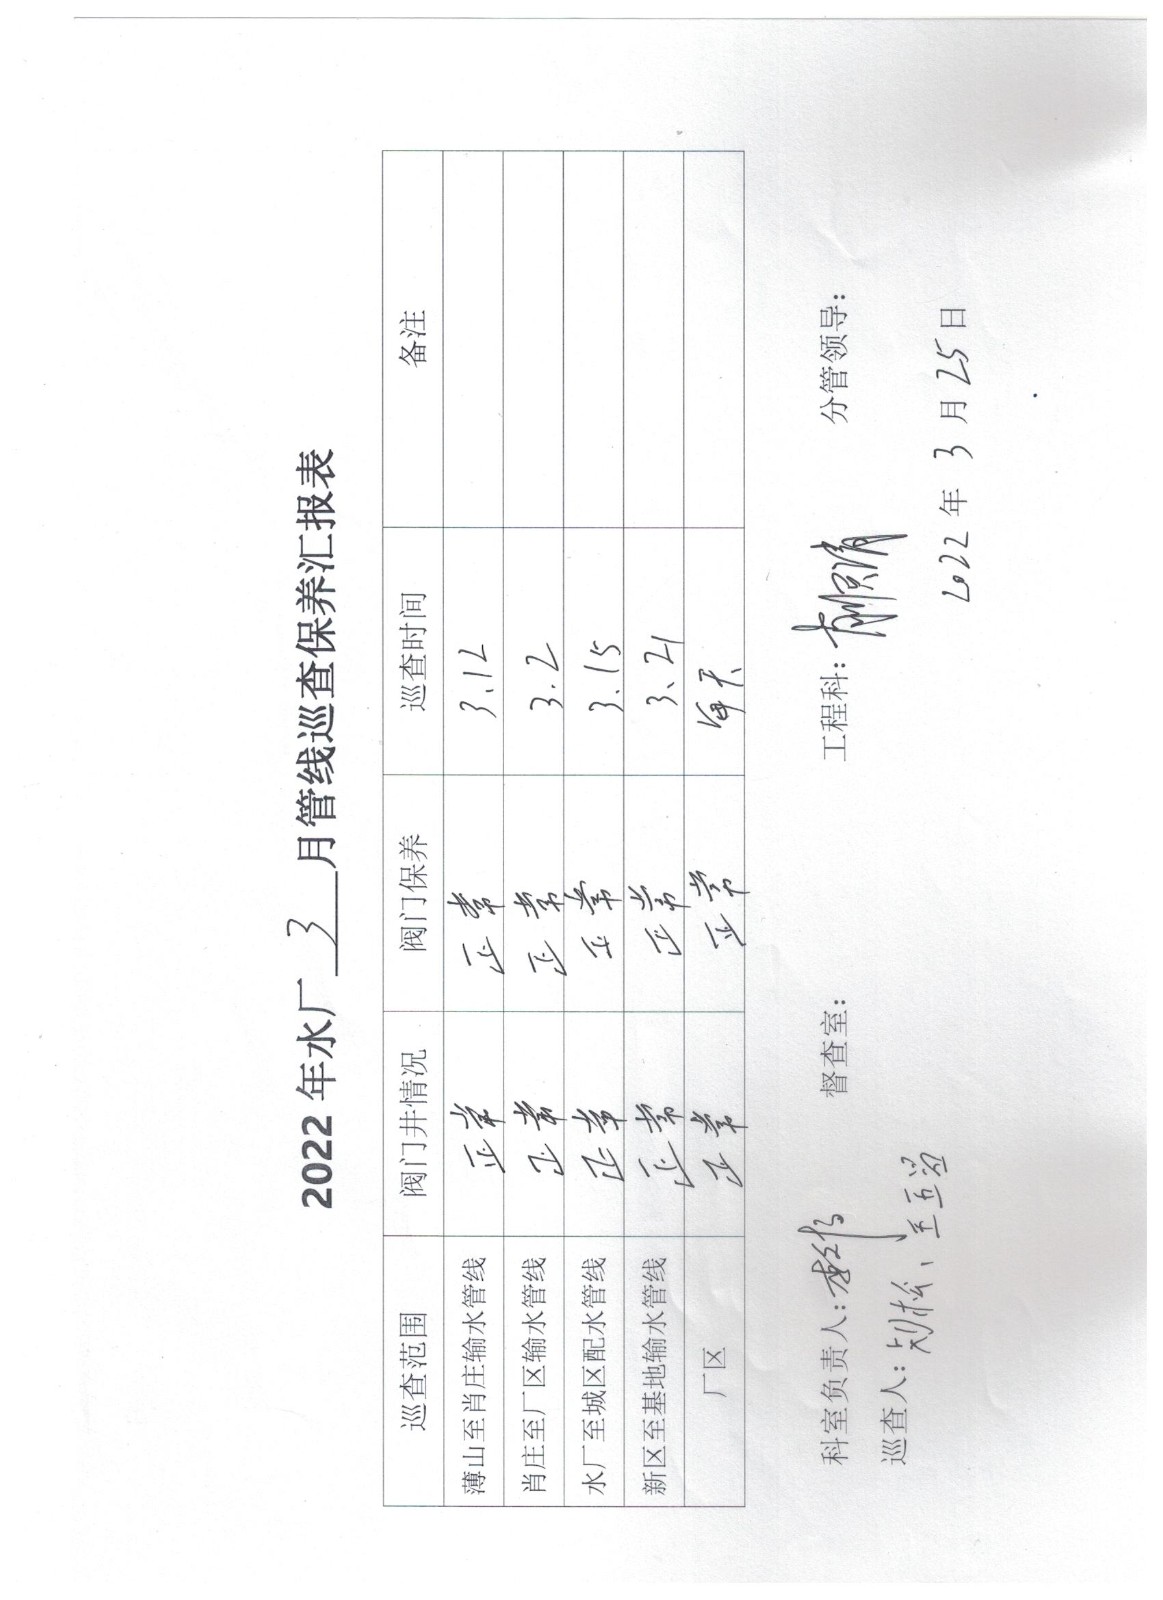 2022年水厂 3 月管线巡查保养汇报表
巡查范围 阀门井情况 阀门保养 巡查时间 备注
薄山至肖庄输水管线 正常 正常 3.12
肖庄至厂区输水管线 正常 正常 3.2
水厂至城区配水管线 正常 正常 3.15
新区至基地输水管线 正常 正常 3.21
厂区 正常 正常 每天
科室负责人: 督查室: 工程科: 分管领导:
巡查人:刘松、
2022年3月25日